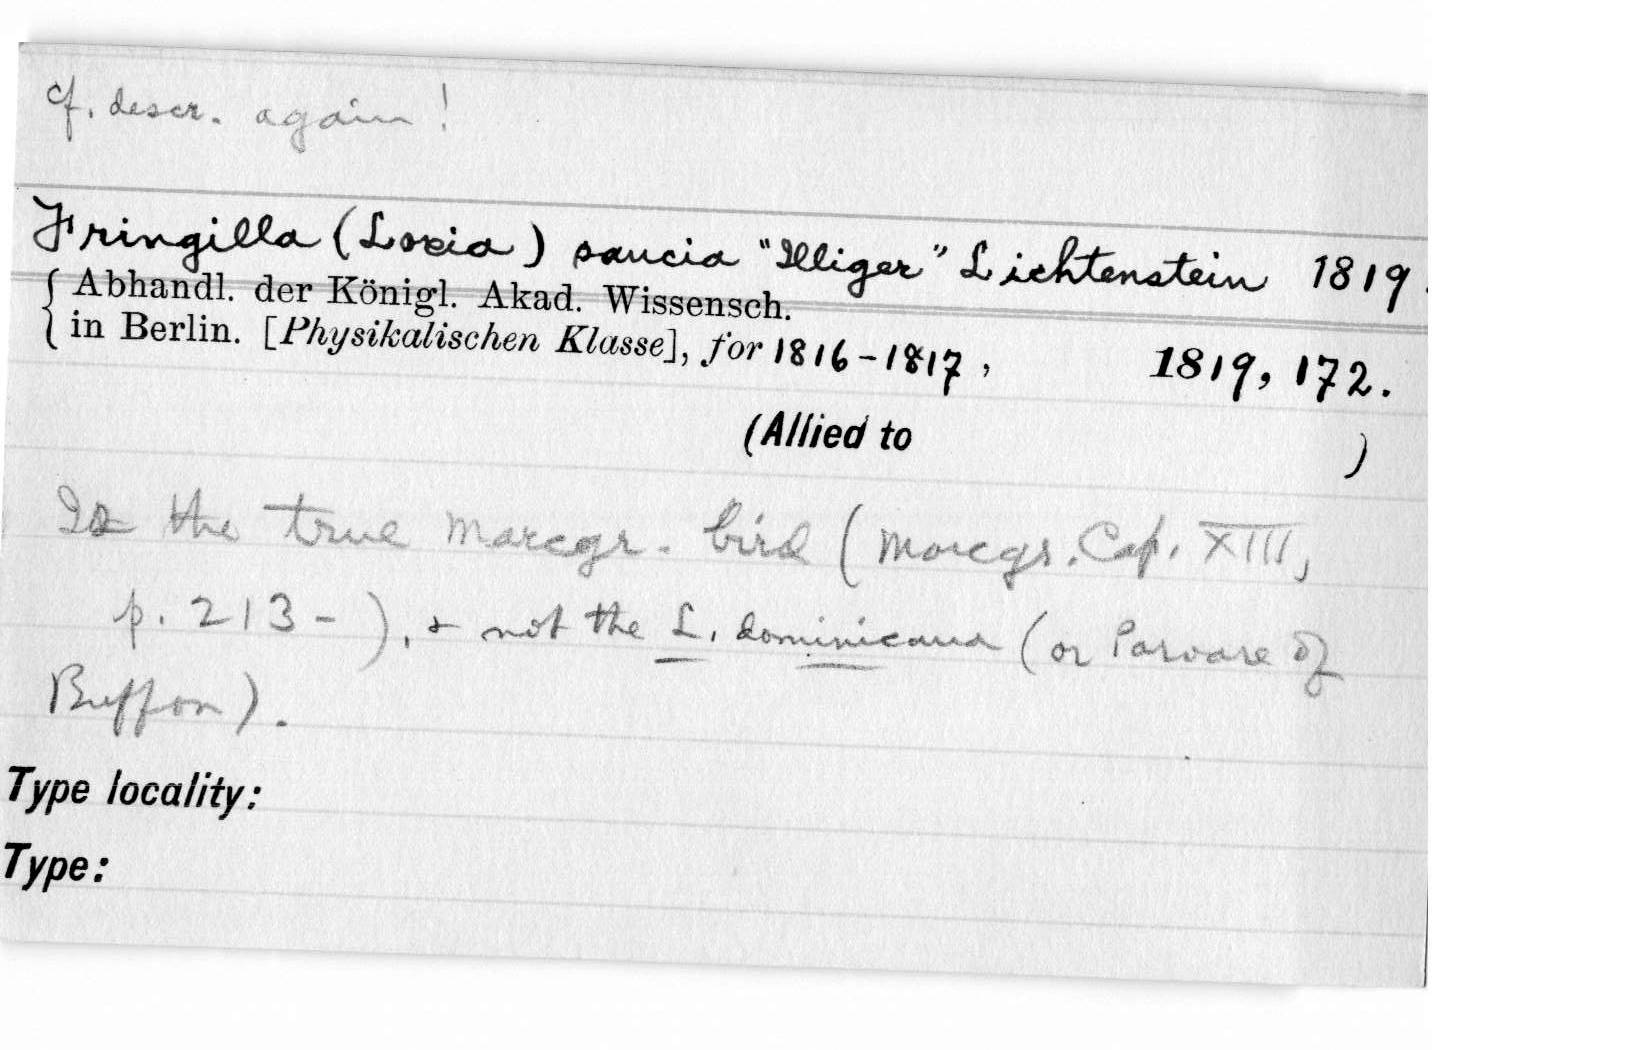 cf. descr. again!
Fringilla (Loxia) saucia "Illiger" Lichtenstein 1819.
Abhandl. der Königl. Akad. Wissensch.
in Berlin. [Physikalischen Klasse], for 1816-1817, 1819, 172.
(Allied to )
Is the true Marcgr. bird (Marcgr. Cap. XIII,
p. 213-), & not the L. dominicana (or Paroare of
Buffon).
Type locality:
Type: